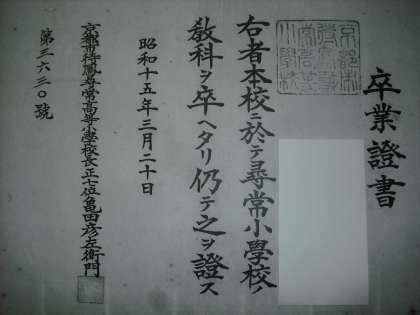 卒業證書
右者本校ニ於テ尋常小學校ノ
敎科ヲ卒ヘタリ仍テ之ヲ證ス
昭和十五年三月二十日
京都市待鳳尋常高等小學校長正七位亀田彦左衛門
第三六三〇號